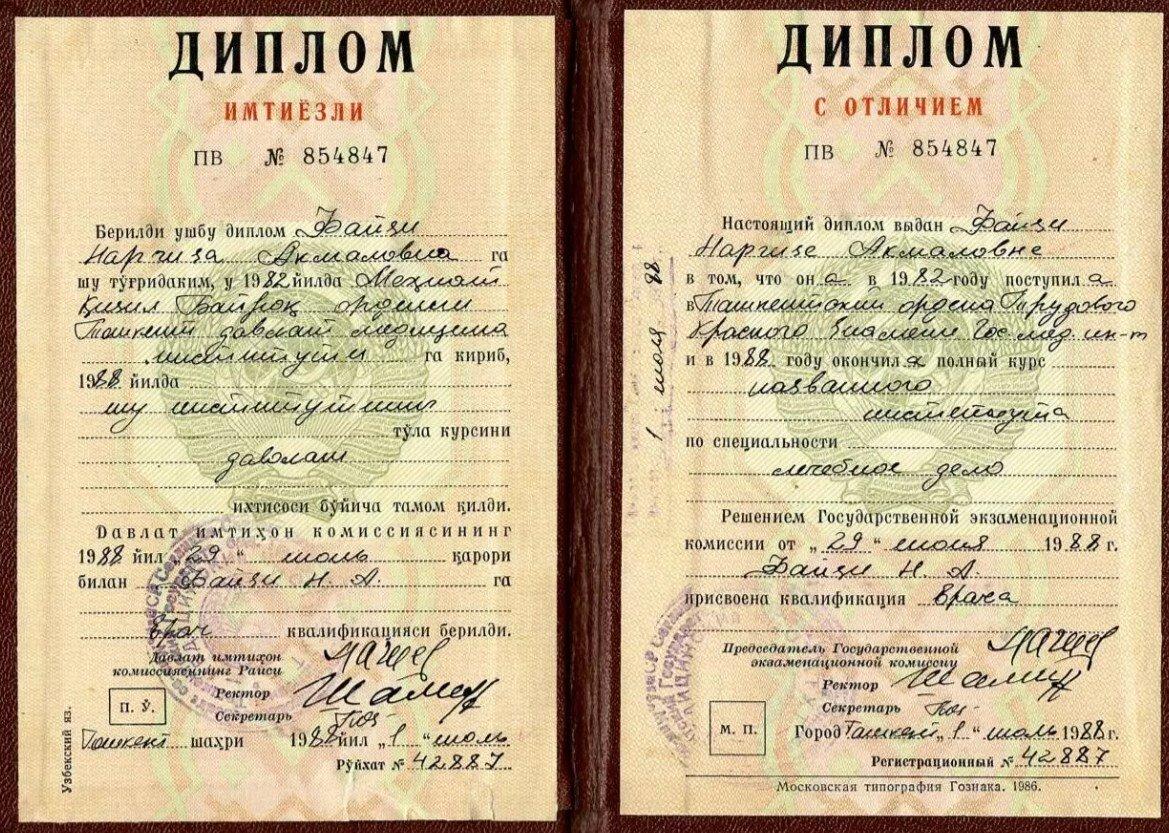 ДИПЛОМ
ИМТИЁЗЛИ
ПВ № 854847
Берилди ушбу диплом Файзи
Наргиза Акмаловна га
шу тўғридаким, у 1982 йилда Меҳнат
Қизил Байроқ ордени
Тошкент давлат медицина
институти га кириб,
1988 йилда
шу институтнинг
тўла курсини
даволаш
ихтисоси бўйича тамом қилди.
Давлат имтиҳон комиссиясининг
1988 йил „29“ июль қарори
билан Файзи Н. А. га
врач квалификацияси берилди.
Давлат имтиҳон
комиссиясининг Раиси
Ректор
Секретарь
П. Ў.
Тошкент шаҳри 1988 йил „1“ июль
Рўйхат № 42887
Узбекский яз.
ДИПЛОМ
С ОТЛИЧИЕМ
ПВ № 854847
Настоящий диплом выдан Файзи
Наргизе Акмаловне
в том, что он а в 1982 году поступил а
в Ташкентский ордена Трудового
Красного Знамени Гос. мед. ин-т
и в 1988 году окончил а полный курс
названного
института
по специальности
лечебное дело
Решением Государственной экзаменационной
комиссии от „29“ июня 1988 г.
Файзи Н. А.
присвоена квалификация врача
Председатель Государственной
экзаменационной комиссии
Ректор
Секретарь
М. П.
Город Ташкент „1“ июль 1988 г.
Регистрационный № 42887
Московская типография Гознака. 1986.
1 июля 88